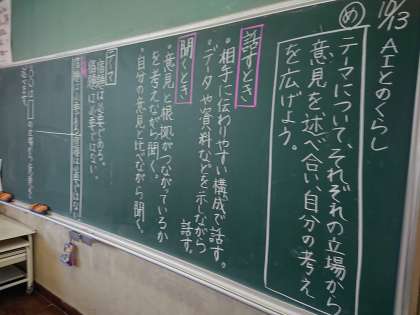 10/13
AIとのくらし
め
テーマについて、それぞれの立場から
意見を述べ合い、自分の考え
を広げよう。
話すとき
・相手に伝わりやすい構成で話す。
・データや資料などを示しながら
話す。
聞くとき
・意見と根拠がつながっているか
を考えながら聞く。
・自分の意見と比べながら聞く。
テーマ
宿題は必要である。
宿題は必要ではない。